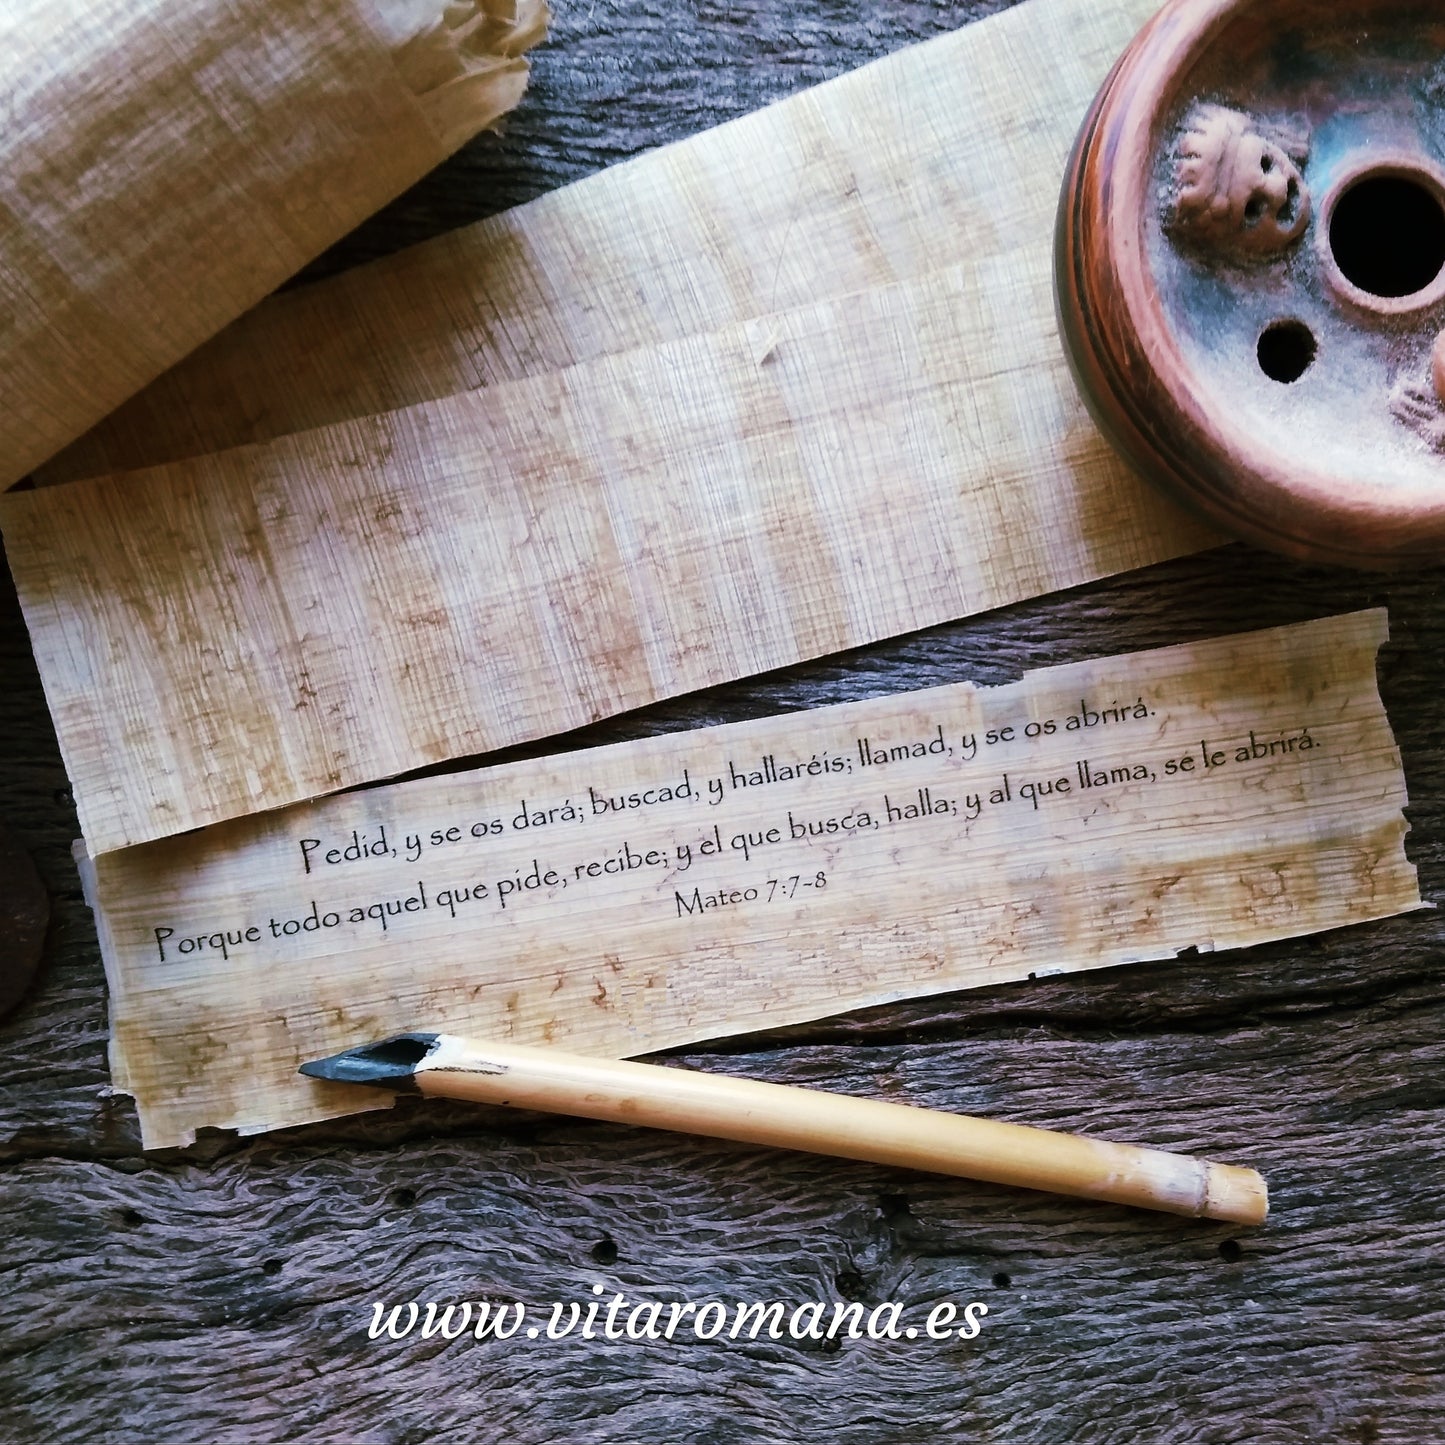 Pedid, y se os dará; buscad, y hallaréis; llamad, y se os abrirá.
Porque todo aquel que pide, recibe; y el que busca, halla; y al que llama, se le abrirá.
Mateo 7:7-8
www.vitaromana.es